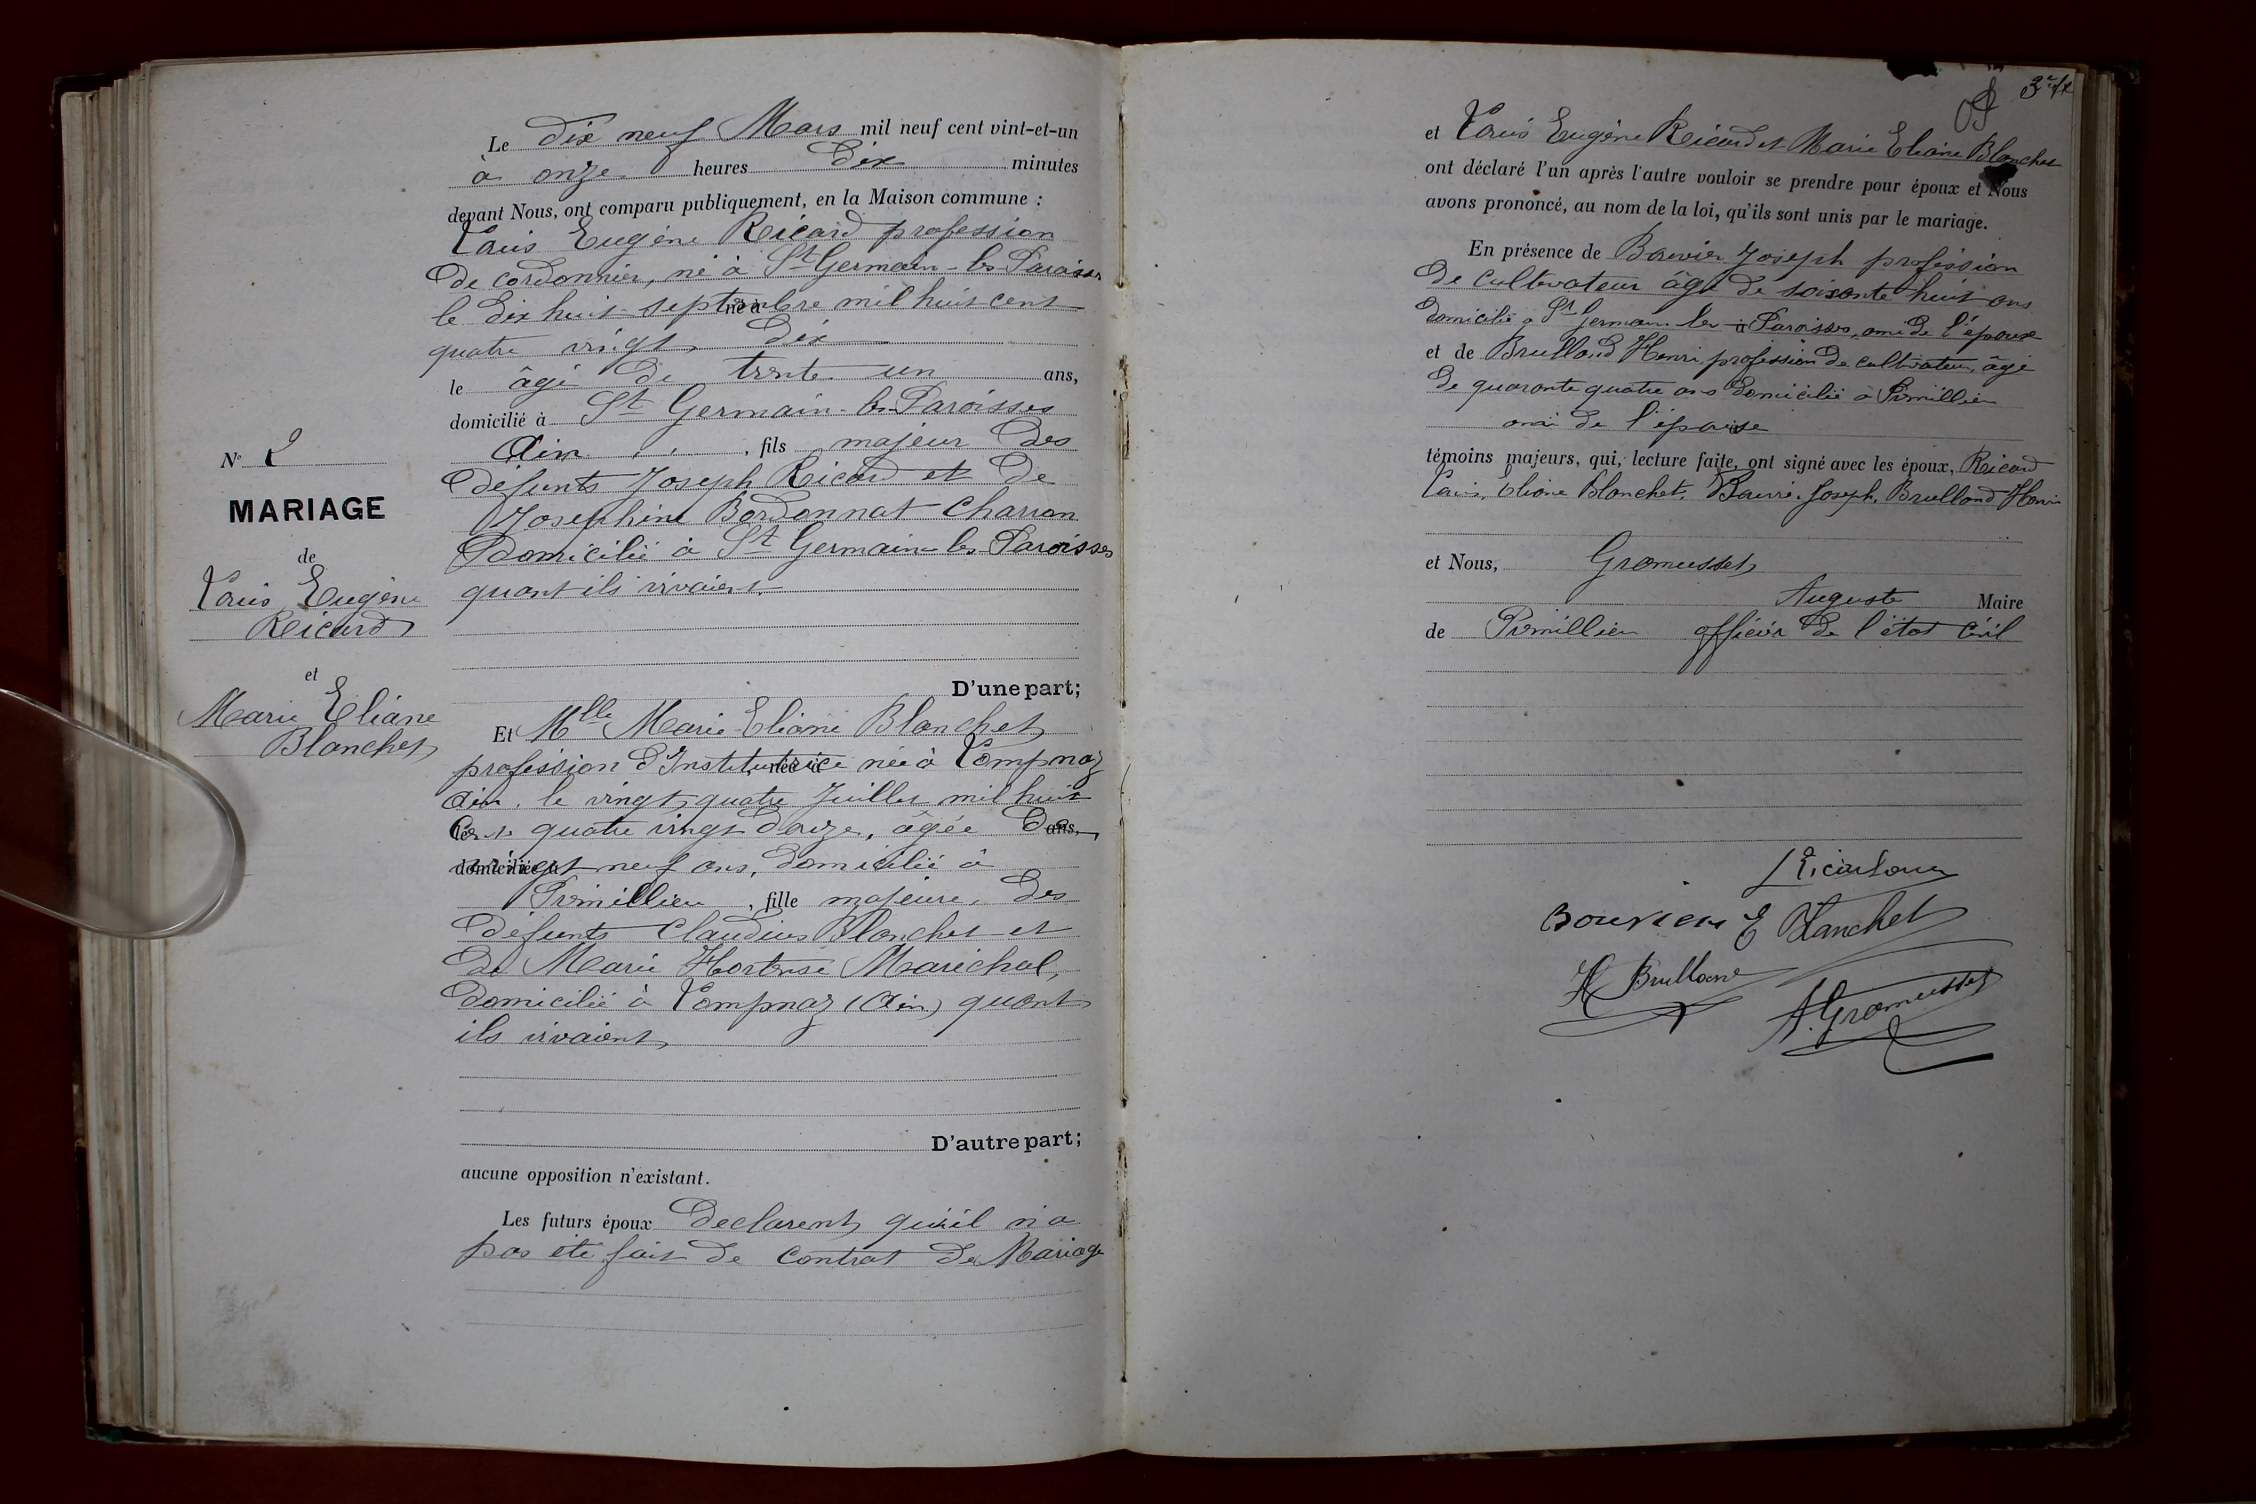 Le dix neuf Mars mil neuf cent vint-et-un
à onze heures dix minutes
devant Nous, ont comparu publiquement, en la Maison commune :
Louis Eugène Récard profession
de cordonnier, né à St Germain-les-Paroisses
le dix huit septembre mil huit cent
né à
quatre vingt dix
le âgé de trente un ans,
domicilié à St Germain-les-Paroisses
Ain, fils majeur des
défunts Joseph Ricard et de
Josephine Bordonnat Charron
Domicilié à St Germain-les-Paroisses
quant ils vivaient.
D'une part;
N° 2
MARIAGE
de
Louis Eugène
Reicard
et
Marie Eliane
Blanchet
Et Mlle Marie Eliane Blanchet
profession d'Institutrice née à Lompnaz
Ain, le vingt quatre Juillet mil huit
cent quatre vingt douze, âgée de
ans,
domiciliée à
vingt neuf ans, domicilié à
Prémillieu, fille majeure, des
défunts Claudius Blanchet et
de Marie Hortense Maréchal,
domicilié à Lompnaz (Ain) quant
ils vivaient
D'autre part;
aucune opposition n'existant.
Les futurs époux declarent qu'il n'a
pas été fait de contrat de Mariage
et Louis Eugène Reicard et Marie Eliane Blanchet
ont déclaré l'un après l'autre vouloir se prendre pour époux et Nous
avons prononcé, au nom de la loi, qu'ils sont unis par le mariage.
En présence de Bouvier Joseph profession
de cultivateur âgé de soixante huit ans
domicilié à St Germain les à Paroisses, ami de l'époux
et de Brulland Henri, profession de cultivateur, âgé
de quarante quatre ans domicilié à Prémillieu
ami de l'épouse
témoins majeurs, qui, lecture faite, ont signé avec les époux, Reicard
Louis, Eliane Blanchet, Bouvié Joseph, Brulland Henri
et Nous, Gromusset
Auguste Maire
de Prémillieu officier de l'état civil
Bouvier E Blanchet
H Brulland
A. Gromusset